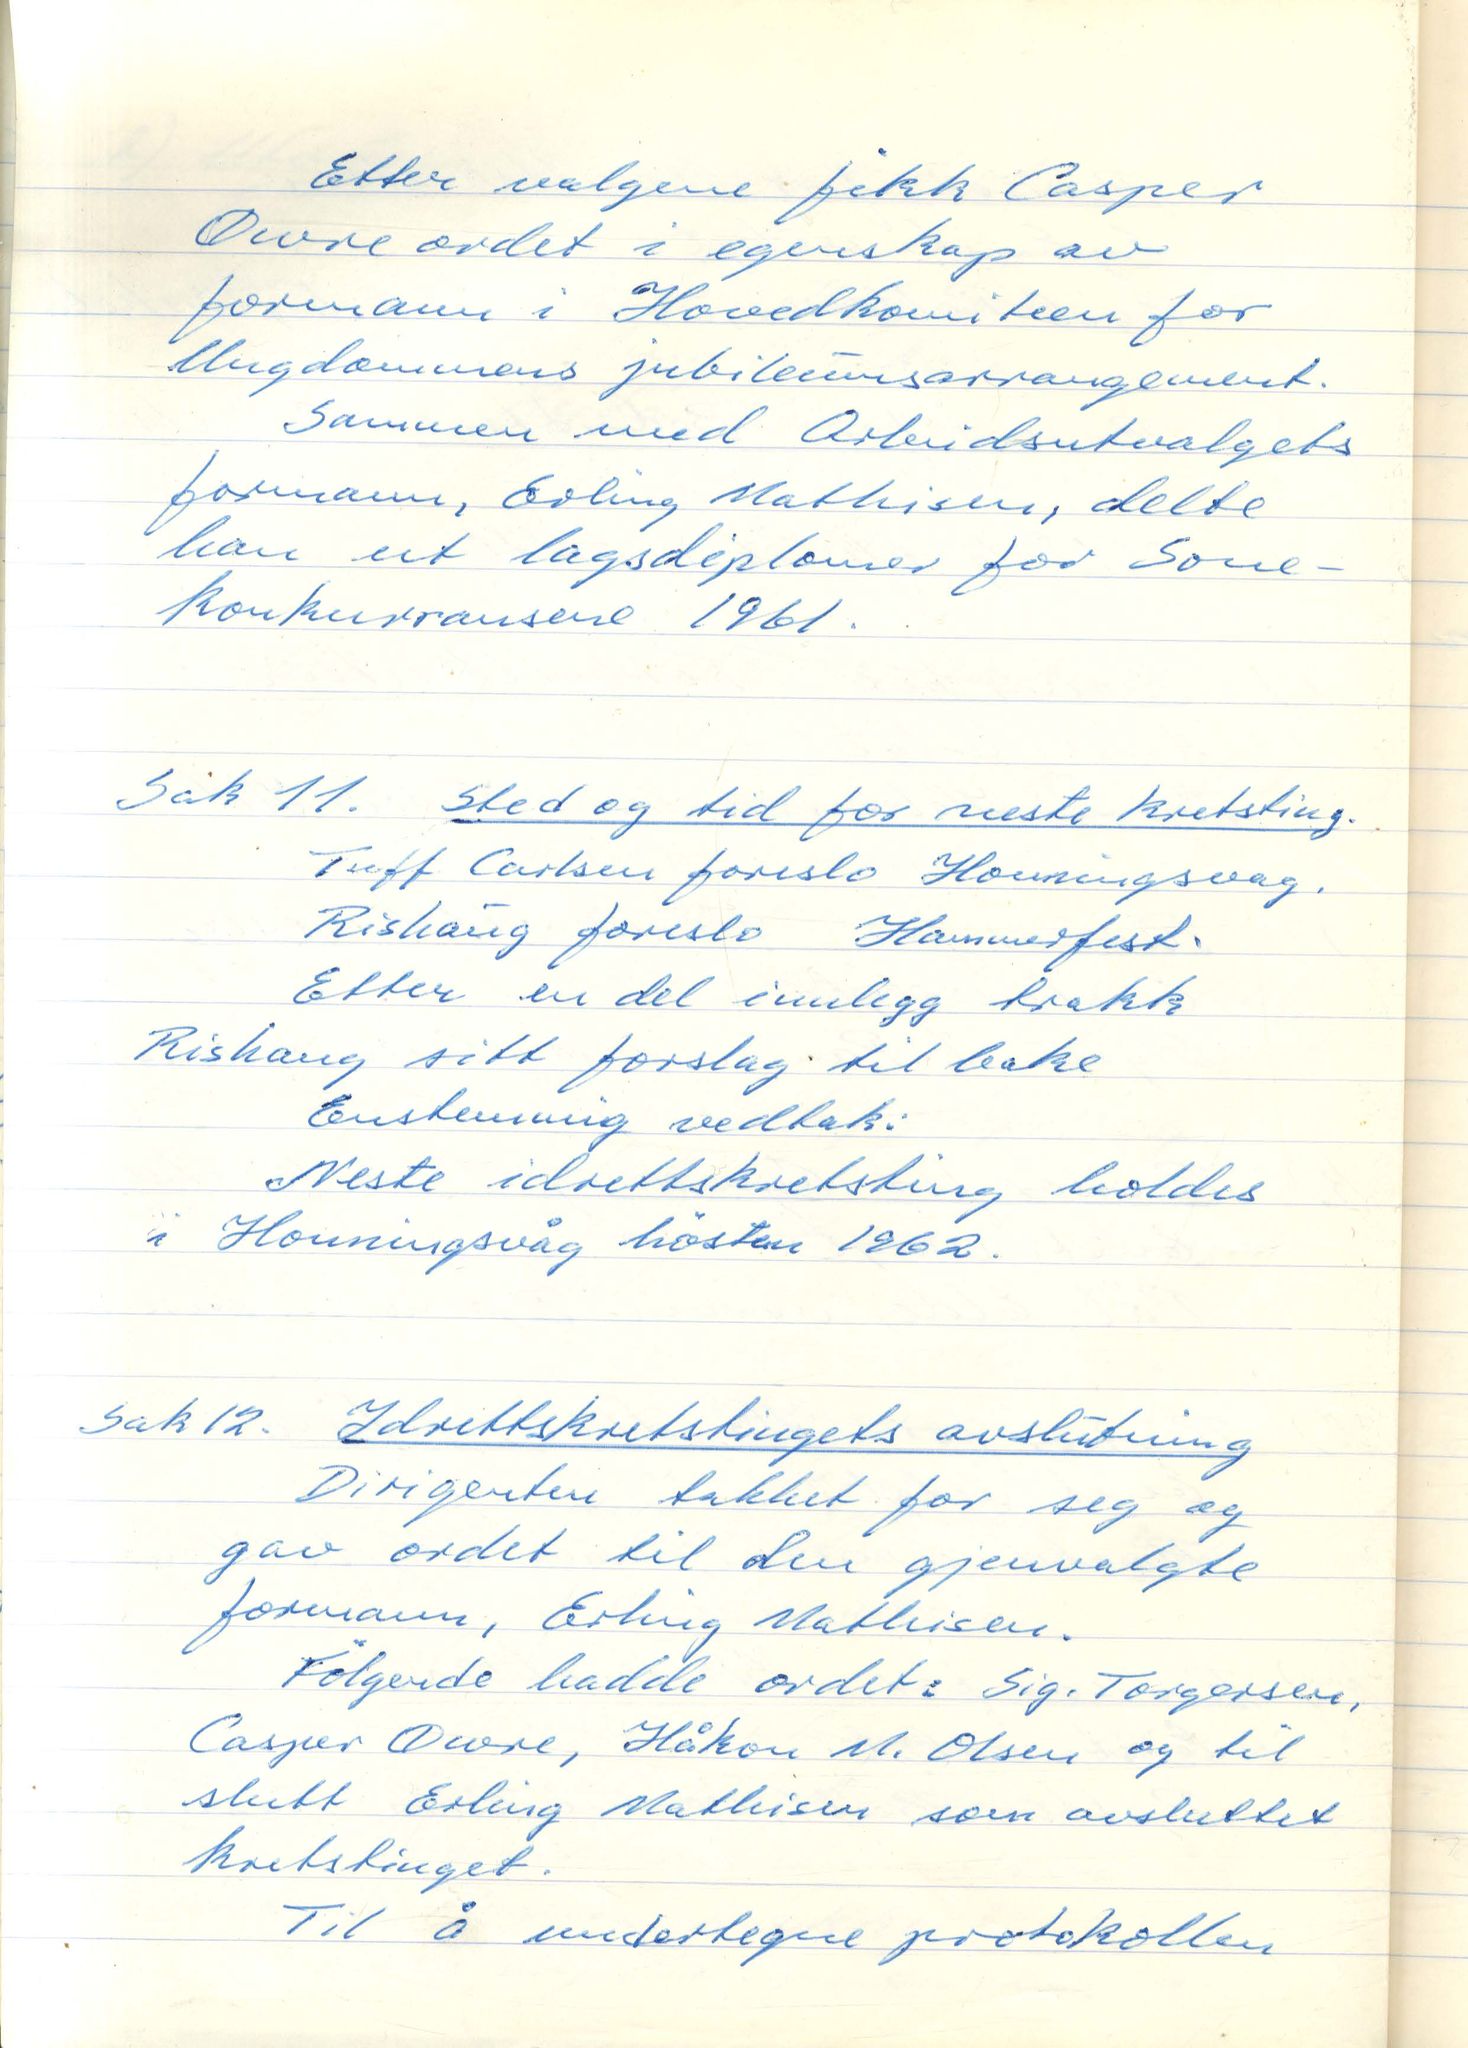 Etter valgene fikk Casper
Owre ordet i egenskap av
formann i Hovedkomiteen for
Ungdommens jubileumsarrangement.
Sammen med Arbeidsutvalgets
formann, Erling Mathisen, delte
han ut lagsdiplomer for Sone-
konkurransene 1961.
Sak 11. Sted og tid for neste kretsting.
Tuff Carlsen foreslo Honningsvag.
Rishaug foreslo Hammerfest.
Etter en del innlegg trakk
Rishaug sitt forslag til bake
Enstemmig vedtak:
Neste idrettskretsting holdes
i Honningsvåg hösten 1962.
Sak 12. Idrettskretstingets avslutning
Dirigenten takket for seg og
gav ordet til den gjenvalgte
formann, Erling Mathisen.
Fölgende hadde ordet: Sig. Torgersen,
Casper Owre, Håkon M. Olsen og til
slutt Erling Mathisen som avsluttet
kretstinget.
Til å undertegne protokollen